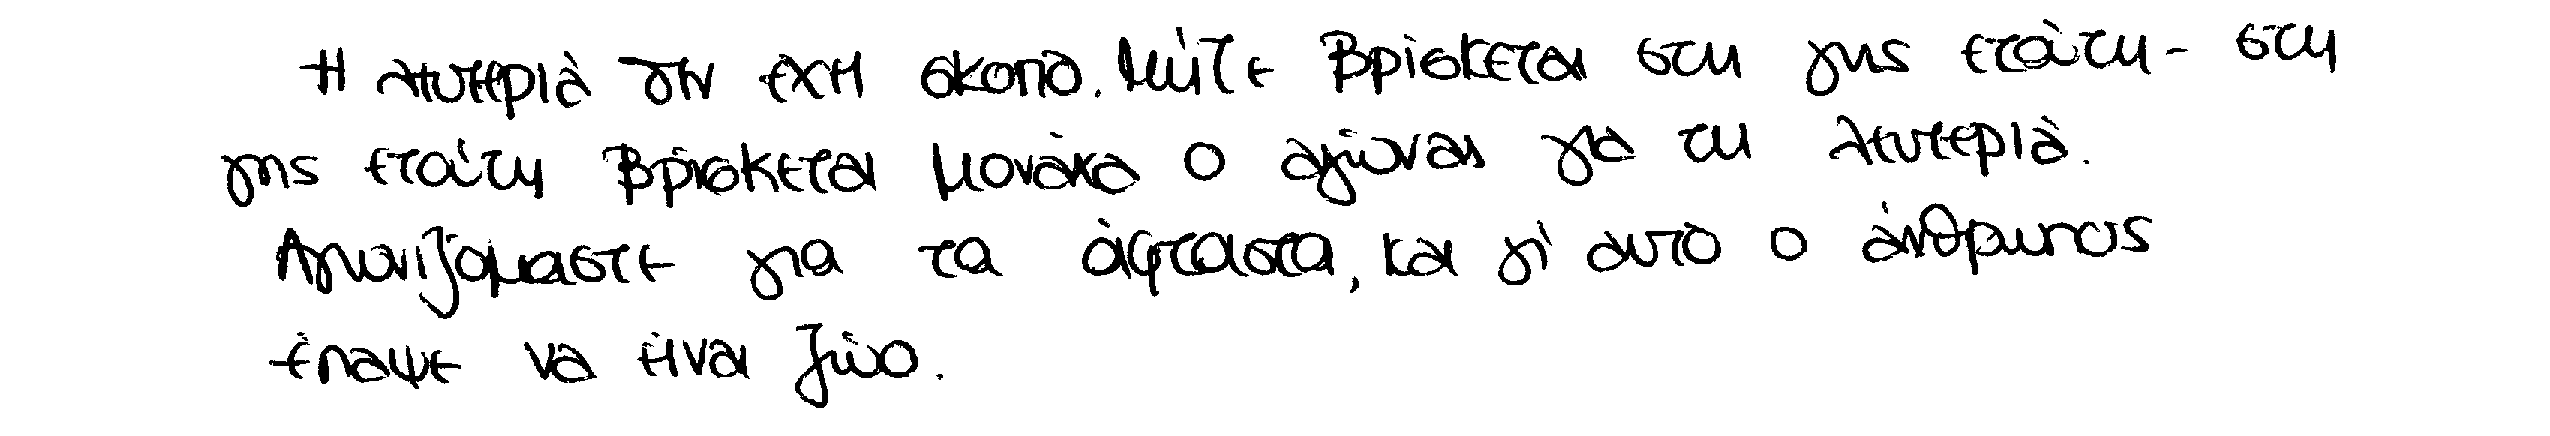 Η λευτεριά γην έχη σκοπό. Μήτε βρίσκεται στη γης ετούτη - στη
γης ετούτη βρίσκεται μονάχα ο αγώνας για τη λευτεριά.
Αγωνιζόμαστε για τα άφταστα, και γι' αυτό ο άνθρωπος
έπαψε να είναι ζώο.